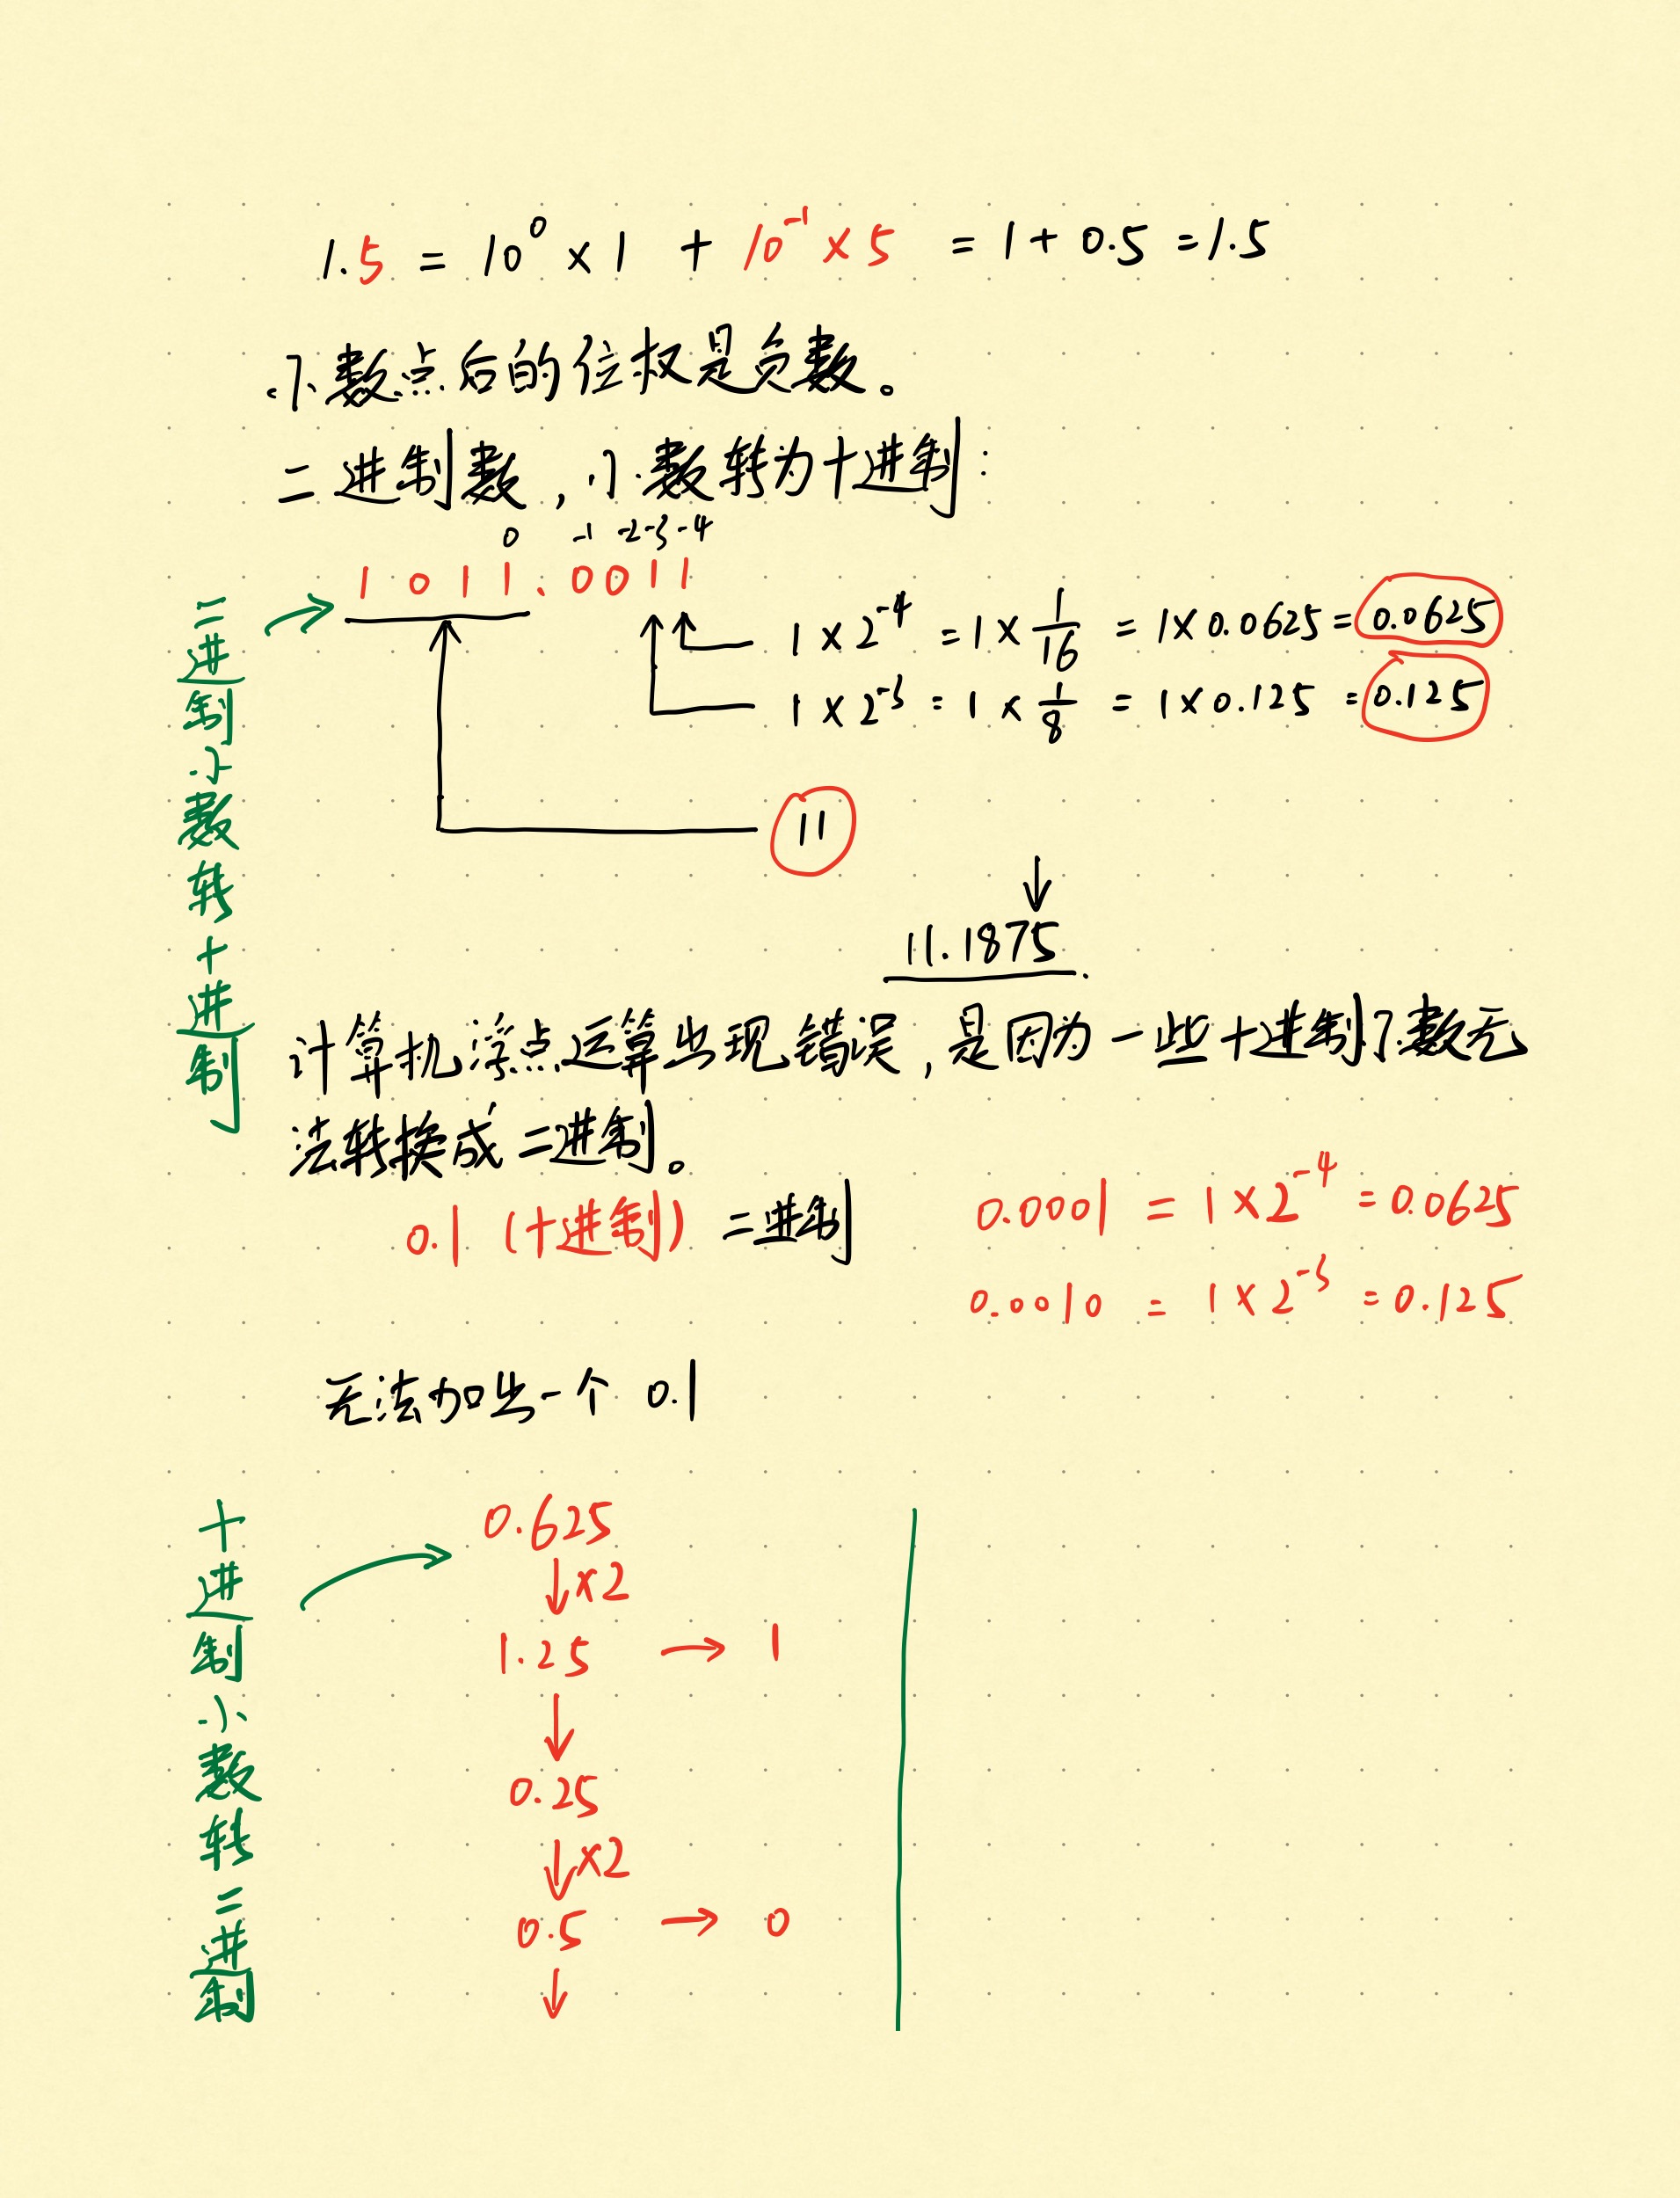 1.5 = 10⁰ × 1 + 10⁻¹ × 5 = 1 + 0.5 = 1.5
小数点后的位权是负数。
二进制数，小数转为十进制：
0 -1 -2 -3 -4
1011.0011
1 × 2⁻⁴ = 1 × 1/16 = 1 × 0.0625 = 0.0625
1 × 2⁻³ = 1 × 1/8 = 1 × 0.125 = 0.125
11
↓
11.1875
二进制小数转十进制 →
计算机浮点运算出现错误，是因为一些十进制小数无
法转换成二进制。
0.1（十进制）二进制
0.0001 = 1 × 2⁻⁴ = 0.0625
0.0010 = 1 × 2⁻³ = 0.125
无法加出一个 0.1
十进制小数转二进制 →
0.625
↓ ×2
1.25 → 1
↓
0.25
↓ ×2
0.5 → 0
↓